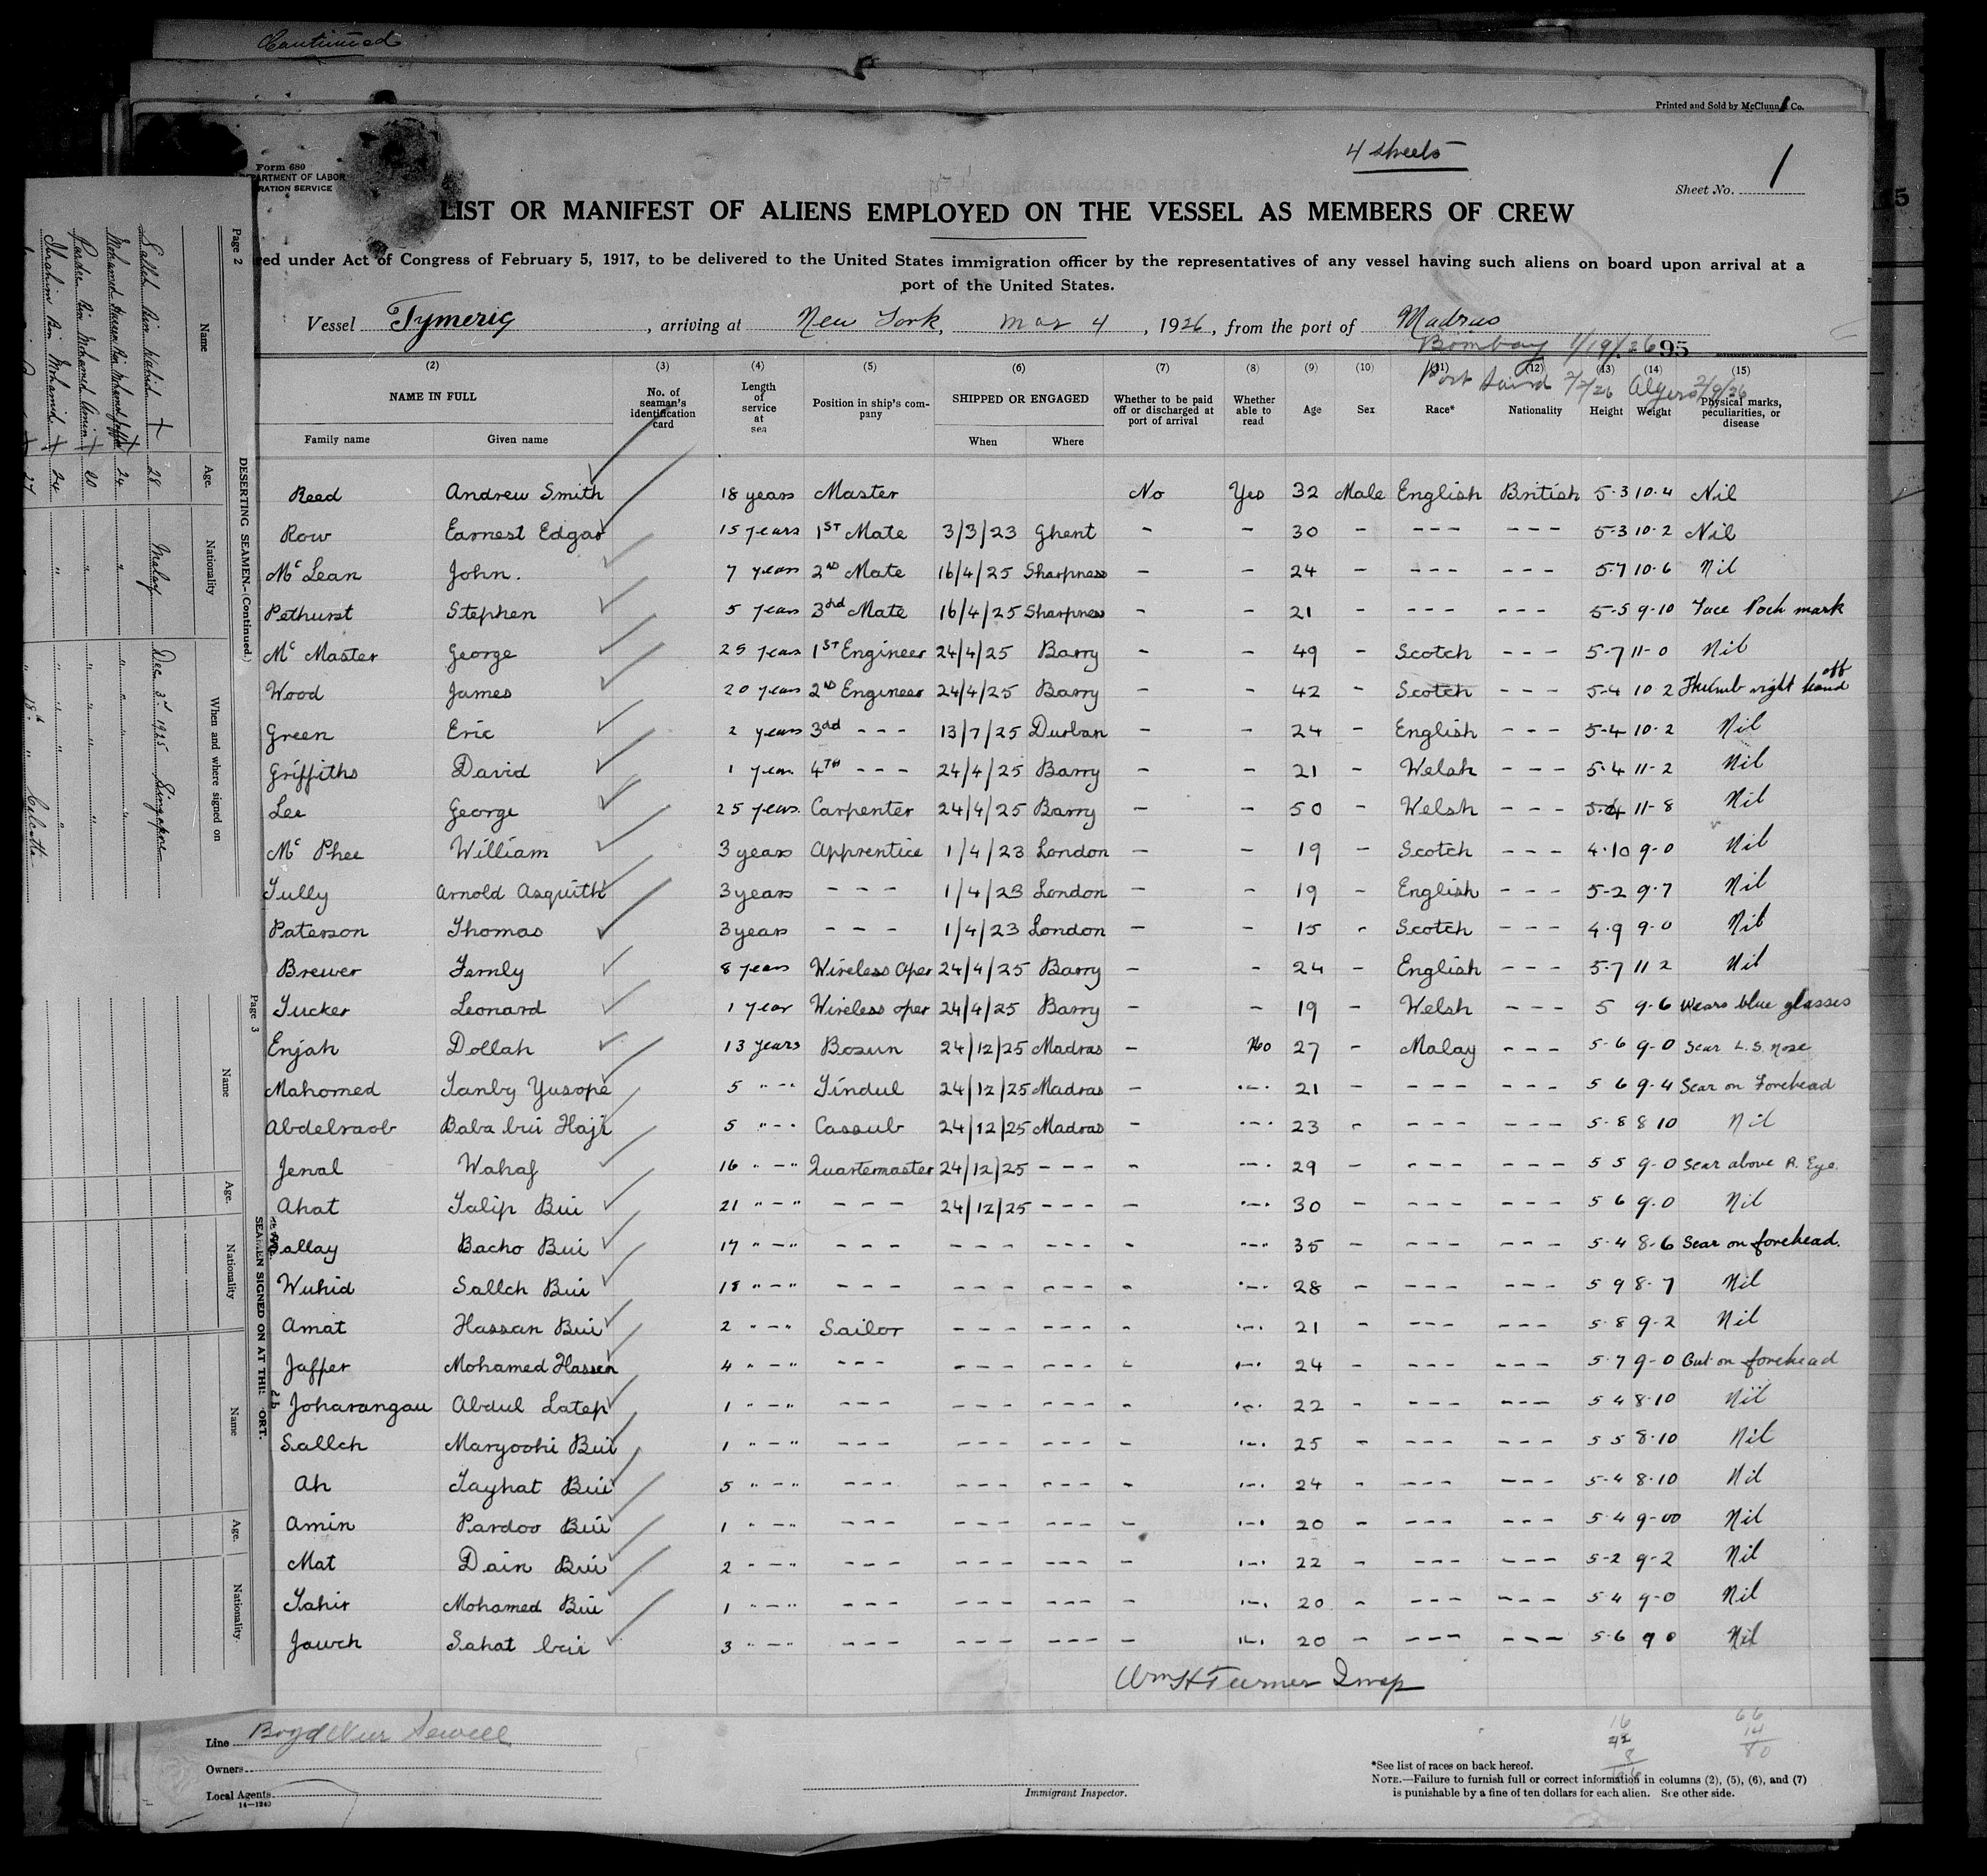 Continued
Printed and Sold by McClunn & Co.
4 sheets
Form 680
DEPARTMENT OF LABOR
RATION SERVICE
Sheet No. 1
LIST OR MANIFEST OF ALIENS EMPLOYED ON THE VESSEL AS MEMBERS OF CREW
red under Act of Congress of February 5, 1917, to be delivered to the United States immigration officer by the representatives of any vessel having such aliens on board upon arrival at a
port of the United States.
Vessel Tymeric, arriving at New York, Mar 4, 1926, from the port of Madras
Bombay 1/19/26 95
Port Said 2/2/26 Algers 2/9/26
(2) (3) (4) (5) (6) (7) (8) (9) (10) (11) (12) (13) (14) (15)
NAME IN FULL No. of seaman's identification card Length of service at sea Position in ship's company SHIPPED OR ENGAGED Whether to be paid off or discharged at port of arrival Whether able to read Age Sex Race* Nationality Height Weight Physical marks, peculiarities, or disease
Family name Given name When Where
Reed Andrew Smith 18 years Master No Yes 32 Male English British 5-3 10-4 Nil
Row Earnest Edgar 15 years 1ST Mate 3/3/23 Ghent - - 30 - --- --- 5-3 10-2 Nil
Mc Lean John. 7 years 2ND Mate 16/4/25 Sharpness - - 24 - --- --- 5-7 10-6 Nil
Pethurst Stephen 5 years 3rd Mate 16/4/25 Sharpness - - 21 - --- --- 5-5 9-10 Face Poch mark
Mc Master George 25 years 1ST Engineer 24/4/25 Barry - - 49 - Scotch --- 5-7 11-0 Nil
Wood James 20 years 2ND Engineer 24/4/25 Barry - - 42 - Scotch --- 5-4 10-2 Thumb right hand off
Green Eric 2 years 3rd --- 13/7/25 Durban - - 24 - English --- 5-4 10-2 Nil
Griffiths David 1 year. 4TH --- 24/4/25 Barry - - 21 - Welsh --- 5-4 11-2 Nil
Lee George 25 years. Carpenter 24/4/25 Barry - - 50 - Welsh --- 5-4 11-8 Nil
Mc Phee William 3 years Apprentice 1/4/23 London - - 19 - Scotch --- 4-10 9-0 Nil
Tully Arnold Asquith 3 years --- 1/4/23 London - - 19 - English --- 5-2 9-7 Nil
Paterson Thomas 3 years --- 1/4/23 London - - 15 - Scotch --- 4-9 9-0 Nil
Brewer Fernly 8 years Wireless Oper 24/4/25 Barry - - 24 - English --- 5-7 11 2 Nil
Tucker Leonard 1 year Wireless oper 24/4/25 Barry - - 19 - Welsh --- 5 9-6 Wears blue glasses
Enjah Dollah 13 years Bosun 24/12/25 Madras - No 27 - Malay --- 5-6 9-0 Scar L.S. Nose
Mahomed Tanby Yusope 5 "-" Tindul 24/12/25 Madras - "-" 21 - --- --- 5 6 9-4 Scar on Forehead
Abdelraob Baba bui Haji 5 "-" Cassub 24/12/25 Madras - "-" 23 - --- --- 5-8 8 10 Nil
Jenal Wahaf 16 "-" Quartermaster 24/12/25 --- - "-" 29 - --- --- 5 5 9-0 Scar above R. Eye.
Ahat Talip Bui 21 "-" --- 24/12/25 --- - "-" 30 - --- --- 5 6 9-0 Nil
Sallay Bacho Bui 17 "-" --- --- --- - "-" 35 - --- --- 5-4 8-6 Scar on forehead.
Wuhid Sallch Bui 18 "-" --- --- --- - "-" 28 - --- --- 5 9 8-7 Nil
Amat Hassan Bui 2 "-" Sailor --- --- - "-" 21 - --- --- 5-8 9-2 Nil
Jaffer Mohamed Hassen 4 "-" --- --- --- - "-" 24 - --- --- 5-7 9-0 Cut on forehead
Joharangau Abdul Latep 1 "-" --- --- --- - "-" 22 - --- --- 5 4 8-10 Nil
Sallch Maryoohi Bui 1 "-" --- --- --- - "-" 25 - --- --- 5 5 8-10 Nil
Ah Tayhat Bui 5 "-" --- --- --- - "-" 24 - --- --- 5-4 8-10 Nil
Amin Pardoo Bui 1 "-" --- --- --- - "-" 20 - --- --- 5 4 9-00 Nil
Mat Dain Bui 2 "-" --- --- --- - "-" 22 - --- --- 5-2 9-2 Nil
Tahir Mohamed Bui 1 "-" --- --- --- - "-" 20 - --- --- 5 4 9-0 Nil
Jawch Sahat bui 3 "-" --- --- --- - "-" 20 - --- --- 5-6 9 0 Nil
Wm H Turner Insp
Line
Owners
Local Agents
14—1240
Immigrant Inspector.
*See list of races on back hereof.
NOTE.—Failure to furnish full or correct information in columns (2), (5), (6), and (7)
is punishable by a fine of ten dollars for each alien. See other side.
16
42
8
66
14
80
Page 2
DESERTING SEAMEN—(Continued.)
Name Age. Nationality When and where signed on
Salleh Bin Wahid + 28 Malay Dec 3rd 1925 Singapore
Mohamed Hassen Bin Mohamed Jaffer + 24 " "
Pardon Bin Mohamed Amin + 20 " "
Ibrahim Bin Mohamid + 24 " "
27 " 18th " Calcutta
Page 3
SEAMEN SIGNED ON AT THIS PORT.
Name Age. Nationality Name Age. Nationality.